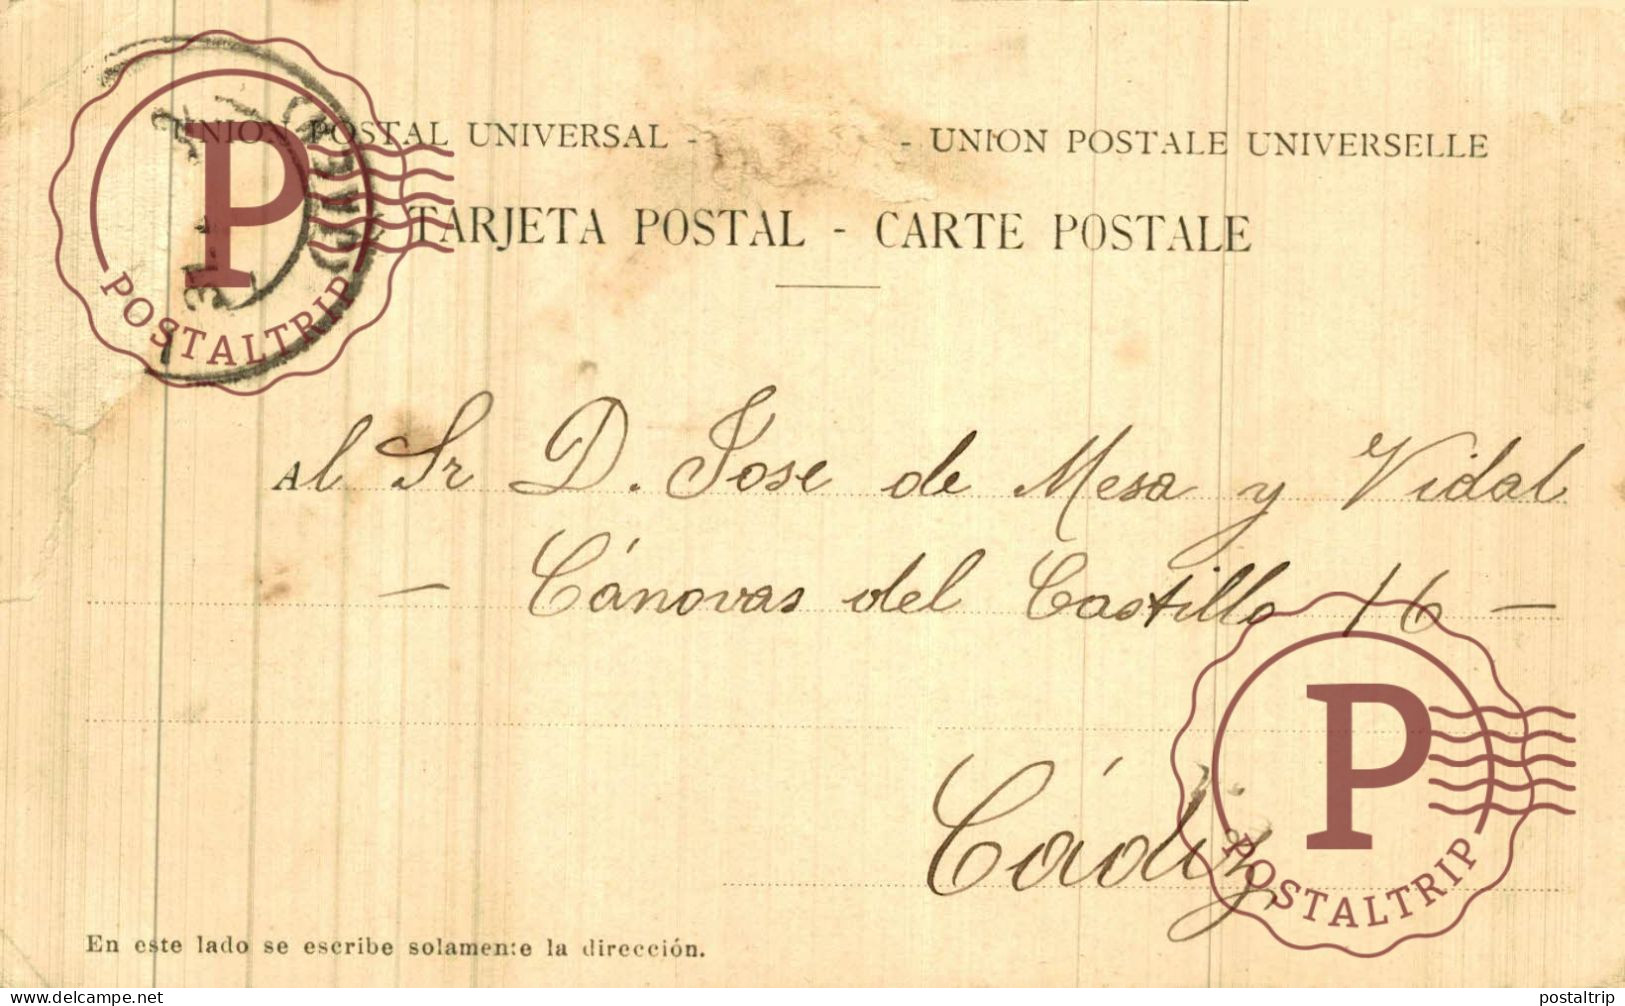 UNION POSTAL UNIVERSAL - - UNION POSTALE UNIVERSELLE
TARJETA POSTAL - CARTE POSTALE
Al Sr D. Jose de Mesa y Vidal
- Cánovas del Castillo 16 -
Cádiz
En este lado se escribe solamente la dirección.
P
POSTALTRIP
P
POSTALTRIP
www.delcampe.net
postaltrip